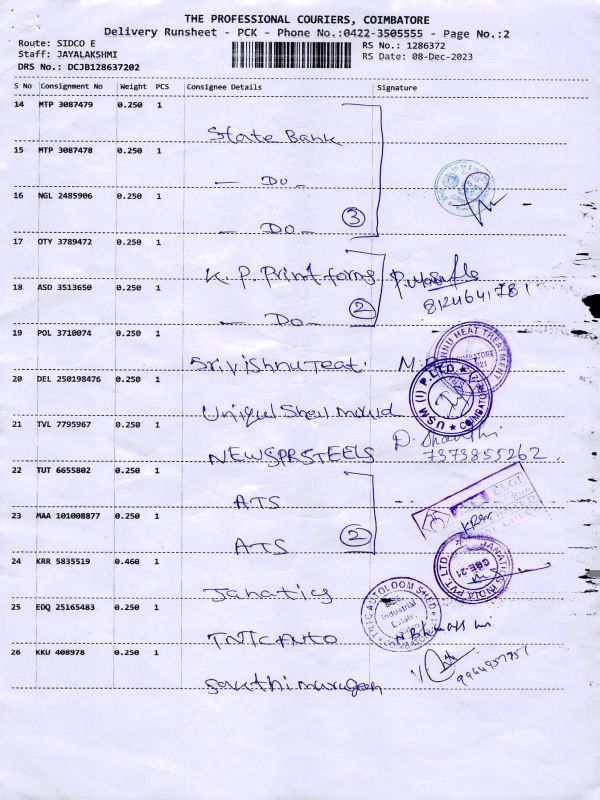 THE PROFESSIONAL COURIERS, COIMBATORE
Delivery Runsheet - PCK - Phone No.:0422-3505555 - Page No.:2
Route: SIDCO E
RS No.: 1286372
Staff: JAYALAKSHMI
RS Date: 08-Dec-2023
DRS No.: DCJB128637202
S No Consignment No Weight PCS Consignee Details Signature
14 MTP 3087479 0.250 1
State Bank
15 MTP 3087478 0.250 1
— DO —
16 NGL 2485906 0.250 1
— DO — 3
17 OTY 3789472 0.250 1
K. P. Print forms
18 ASD 3513650 0.250 1
8124641781
— DO — 2
19 POL 3710074 0.250 1
HEAT TREATMENT
Sri Vishnu Teat.
20 DEL 250198476 0.250 1
USM (I) P.LTD. COIMBATORE
Unique Shell mould
21 TVL 7795967 0.250 1
D. Shanthi
NEWSPRSTEELS 7373855262
22 TUT 6655802 0.250 1
ATS
23 MAA 101008877 0.250 1
ATS 2
24 KRR 5835519 0.460 1
JANATICS INDIA PVT. LTD. CBE-21
Janatics
25 EDQ 25165483 0.250 1
TNTC AUTOLOOM SHED
Industrial
Estate
TNTC Auto
26 KKU 408978 0.250 1
Sakthi murugan